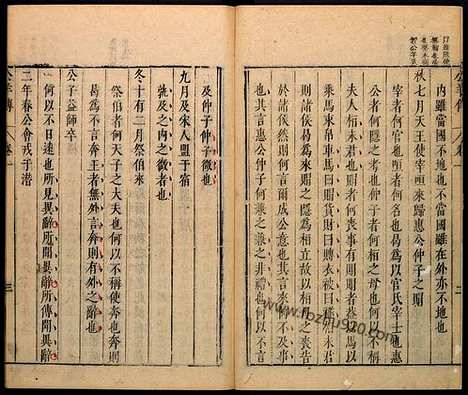 內雖當國也不當國雖在外亦不地也
秋七月天王使宰咺來歸惠公仲子之賵
宰者何官也咺者何名也曷為以官氏宰士也惠
公者何隱之考也仲子者何桓之母也何以不稱
夫人桓未君也賵者何喪事有賵賵者蓋以馬以
乘馬束帛車馬曰賵貨財曰賻衣被曰襚桓未君
則諸侯曷為來賵之隱為桓立故以桓母之喪告
于諸侯然則何言爾成公意也其言來何不及事
也其言惠公仲子何兼之兼之非禮也何以不言
及仲子仲子微也
九月及宋人盟于宿
孰及之內之微者也
冬十有二月祭伯來
祭伯者何天子之大夫也何以不稱使奔也奔則
曷為不言奔王者無外言奔則有外之辭也
公子益師卒
何以不日遠也所見異辭所聞異辭所傳聞異辭
二年春公會戎于潛
公羊傳 卷一 三